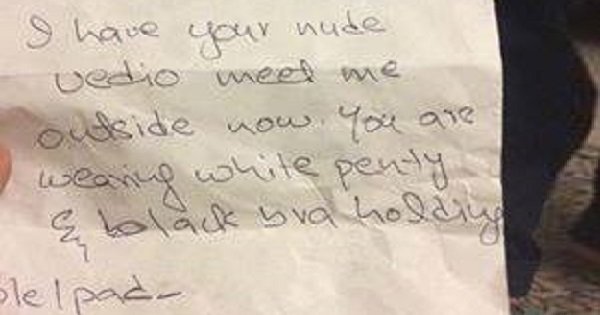 I have your nude
vedio meet me
outside now. You are
wearing white penty
& black bra holding
ple/pad-